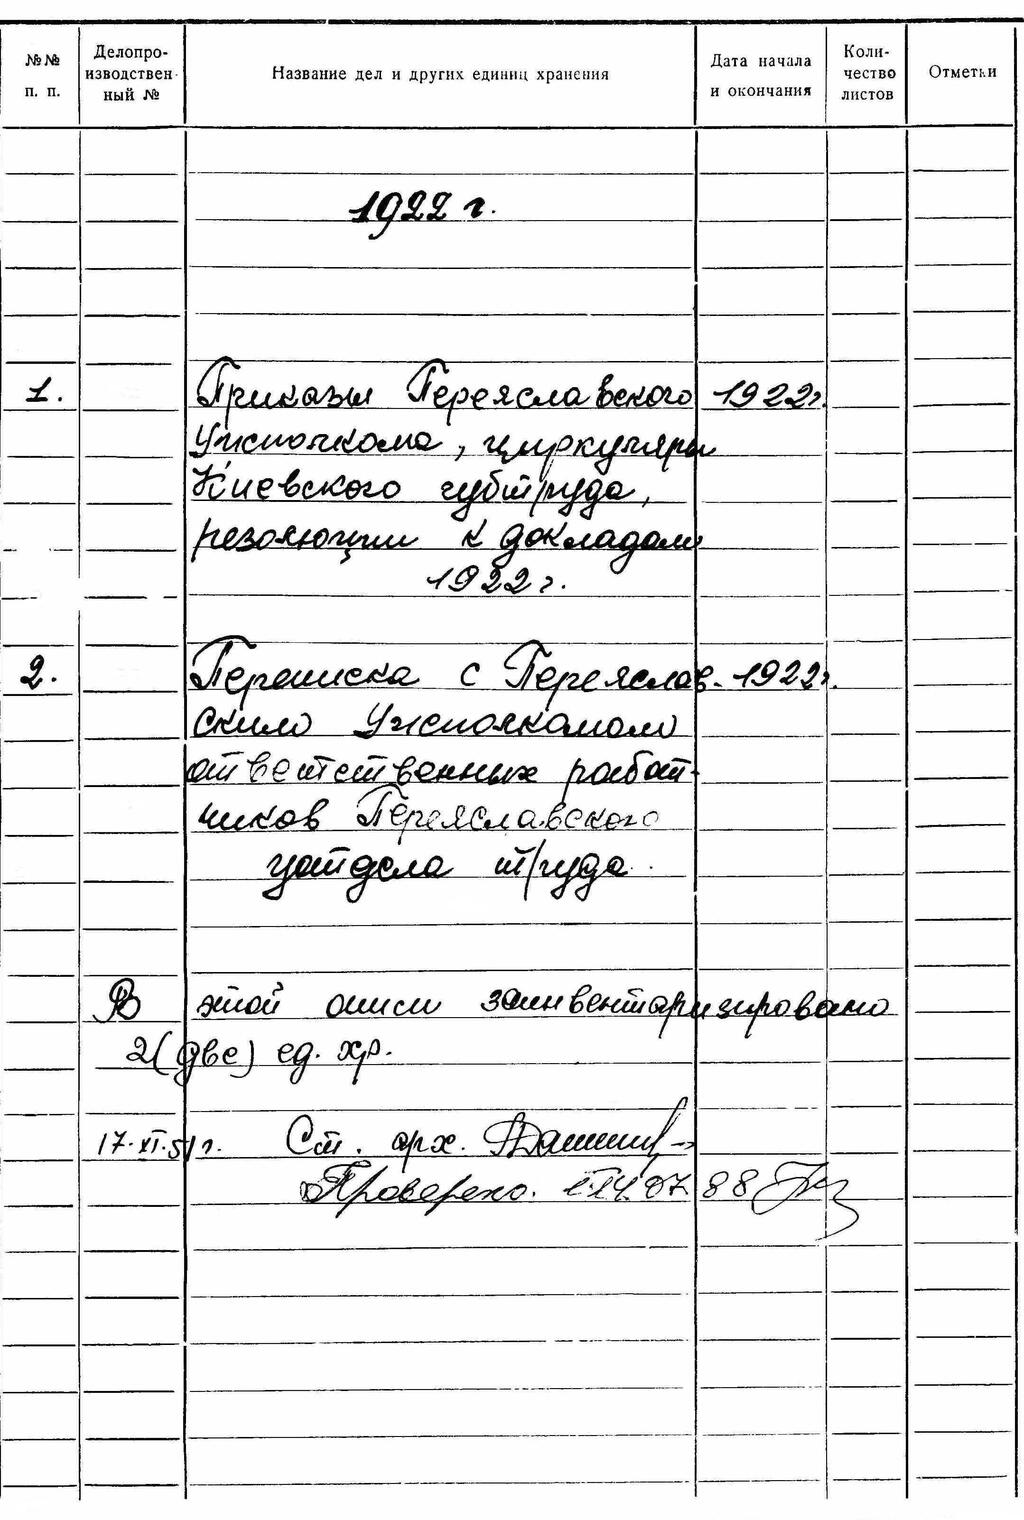 №№ п. п.
Делопроизводствен-ный №
Название дел и других единиц хранения
Дата начала и окончания
Коли-чество листов
Отметки
1922 г.
1. Приказы Переяславского 1922г.
Уисполкома, циркуляры
Киевского губтруда,
резолюции к докладам
1922 г.
2. Переписка с Переяслав- 1922г.
ским Уисполкомом
ответственных работ-
ников Переяславского
уотдела труда.
В этой описи заинвентаризировано
2 (две) ед. хр.
17.XI.51 г. Ст. арх.
Проверено. 07 88